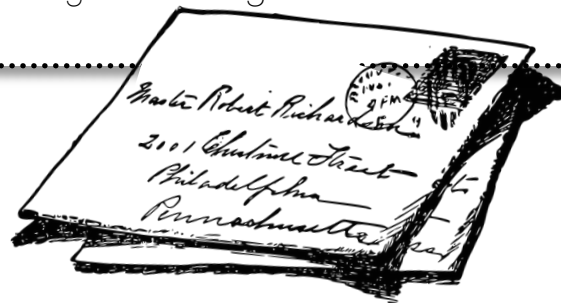 Master Robert Richardson
2001 Chestnut Street
Philadelphia
Pennachusetts
9 PM